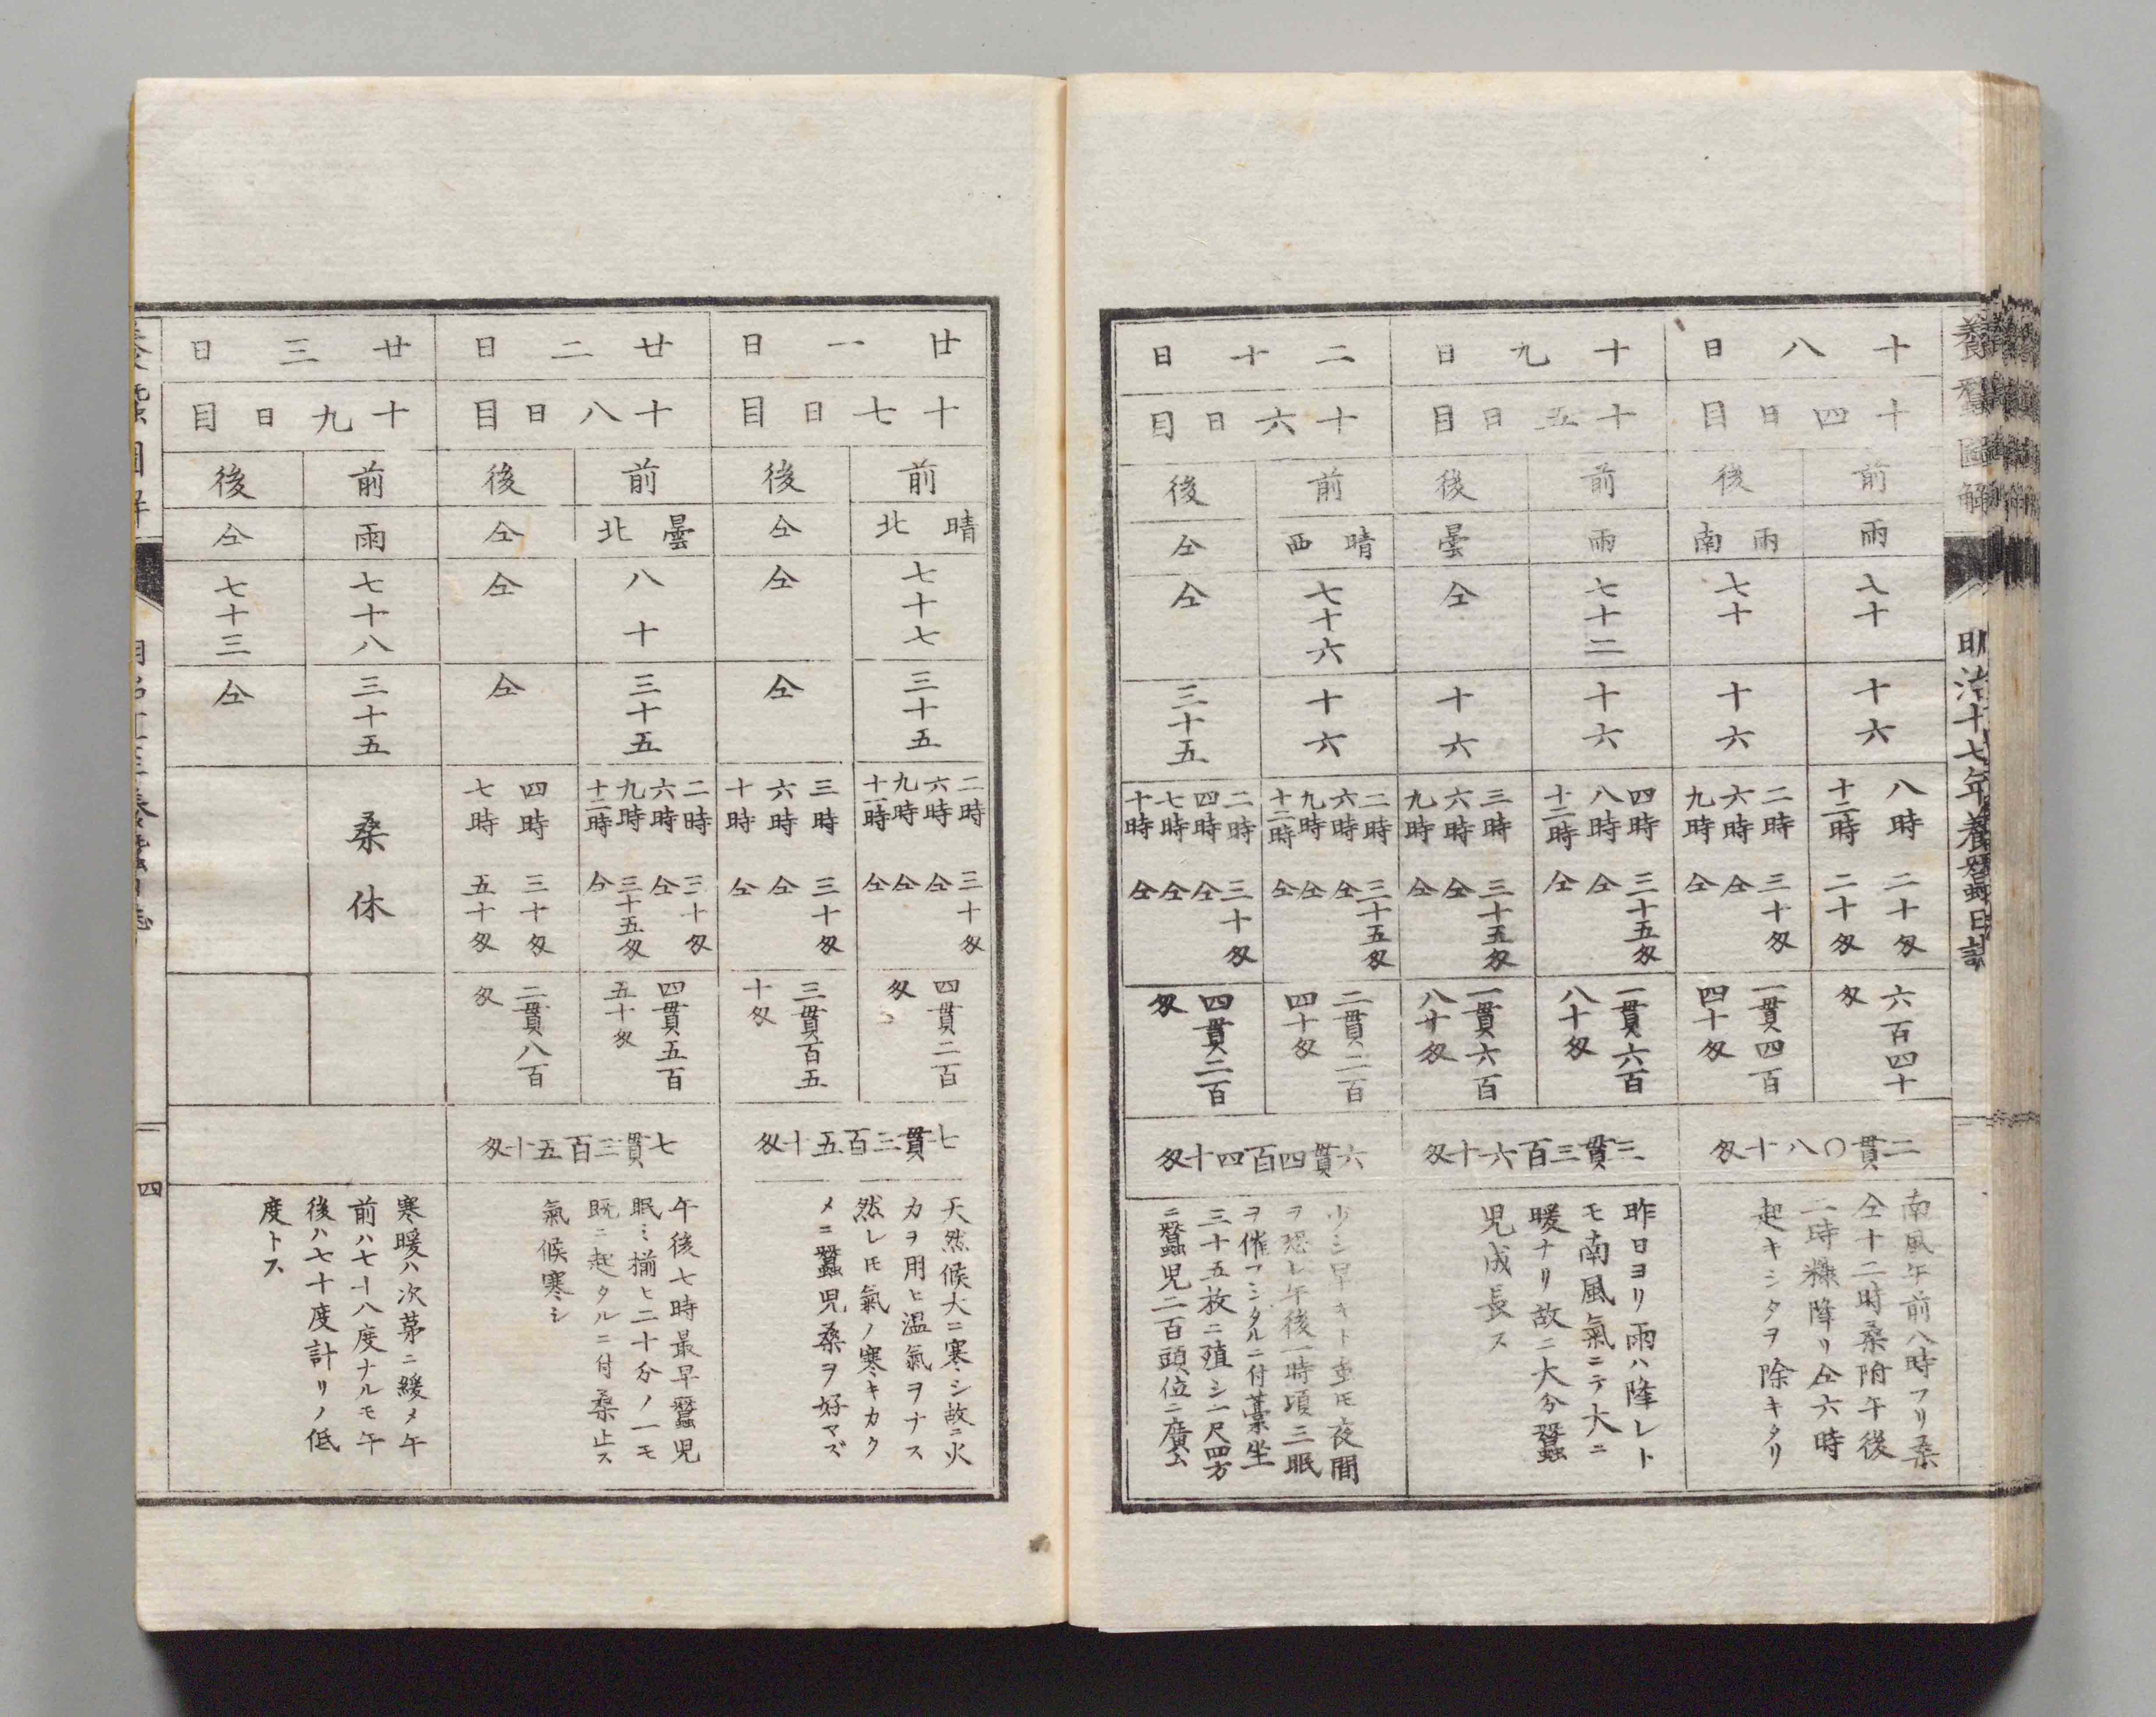 養蚕圖解
明治十七年養蠶日誌
十八日
十四日目
前
雨
八十
十六
八時 二十匁
十二時 二十匁
六百四十
匁
後
雨 南
七十
十六
二時 三十匁
六時 仝
九時 仝
一貫四百
四十匁
二貫〇八十匁
南風午前八時フリ桑
仝十二時桑附午後
二時糠降リ仝六時
起キシタヲ除キタリ
十九日
十五日目
前
雨
七十二
十六
四時 三十五匁
八時 仝
十二時 仝
一貫六百
八十匁
後
曇
仝
十六
三時 三十五匁
六時 仝
九時 仝
一貫六百
八十匁
三貫三百六十匁
昨日ヨリ雨ハ降レト
モ南風氣ニテ大ニ
暖ナリ故ニ大分蠶
児成長ス
二十日
十六日目
前
晴 西
七十六
十六
二時 三十五匁
六時 仝
九時 仝
十二時 仝
二貫二百
四十匁
後
仝
仝
三十五
二時 三十匁
四時 仝
七時 仝
十時 仝
四貫二百
匁
六貫四百四十匁
少シ早キト雖モ夜間
ヲ恐レ午後一時頃三眠
ヲ催フシタルニ付藁坐
三十五枚ニ殖シ一尺四方
ニ蠶児二百頭位ニ廣ム
廿一日
十七日目
前
晴 北
七十七
三十五
二時 三十匁
六時 仝
九時 仝
十二時 仝
四貫二百
匁
後
仝
仝
仝
三時 三十匁
六時 仝
十時 仝
三貫百五
十匁
七貫三百五十匁
天然候大ニ寒シ故ニ火
カヲ用ヒ温氣ヲナス
然レ𪜈氣ノ寒キカタ
メニ蠶児桑ヲ好マズ
廿二日
十八日目
前
曇 北
八十
三十五
二時 三十匁
六時 仝
九時 三十五匁
十二時 仝
四貫五百
五十匁
後
仝
仝
仝
四時 三十匁
七時 五十匁
二貫八百
匁
七貫三百五十匁
午後七時最早蠶児
眠ミ揃ヒ二十分ノ一モ
既ニ起タルニ付桑止ス
氣候寒シ
廿三日
十九日目
前
雨
七十八
三十五
桑休
後
仝
七十三
仝
寒暖ハ次第ニ緩メ午
前ハ七十八度ナルモ午
後ハ七十度計リノ低
度トス
四